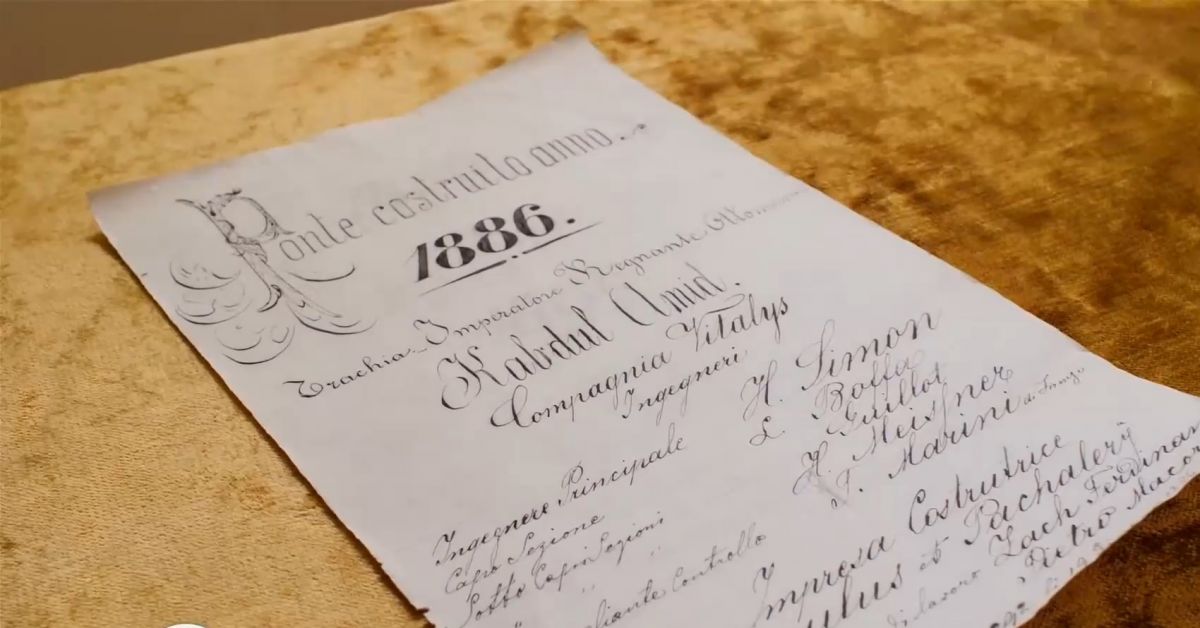 Ponte costruito anno.
1886.
Trachia. Imperatore Regnante
Kabdul Amid.
Compagnia Vitalys
Ingegneri
Ingegnere Principale H. Simon
Capo Sezione L. Boffa
Sotto Capi Sezioni Guillot
" " H. Meisfner
Controllo F. Marini
Impresa Costrutrice
et Pachalerÿ
di lavoro Zach
Pietro